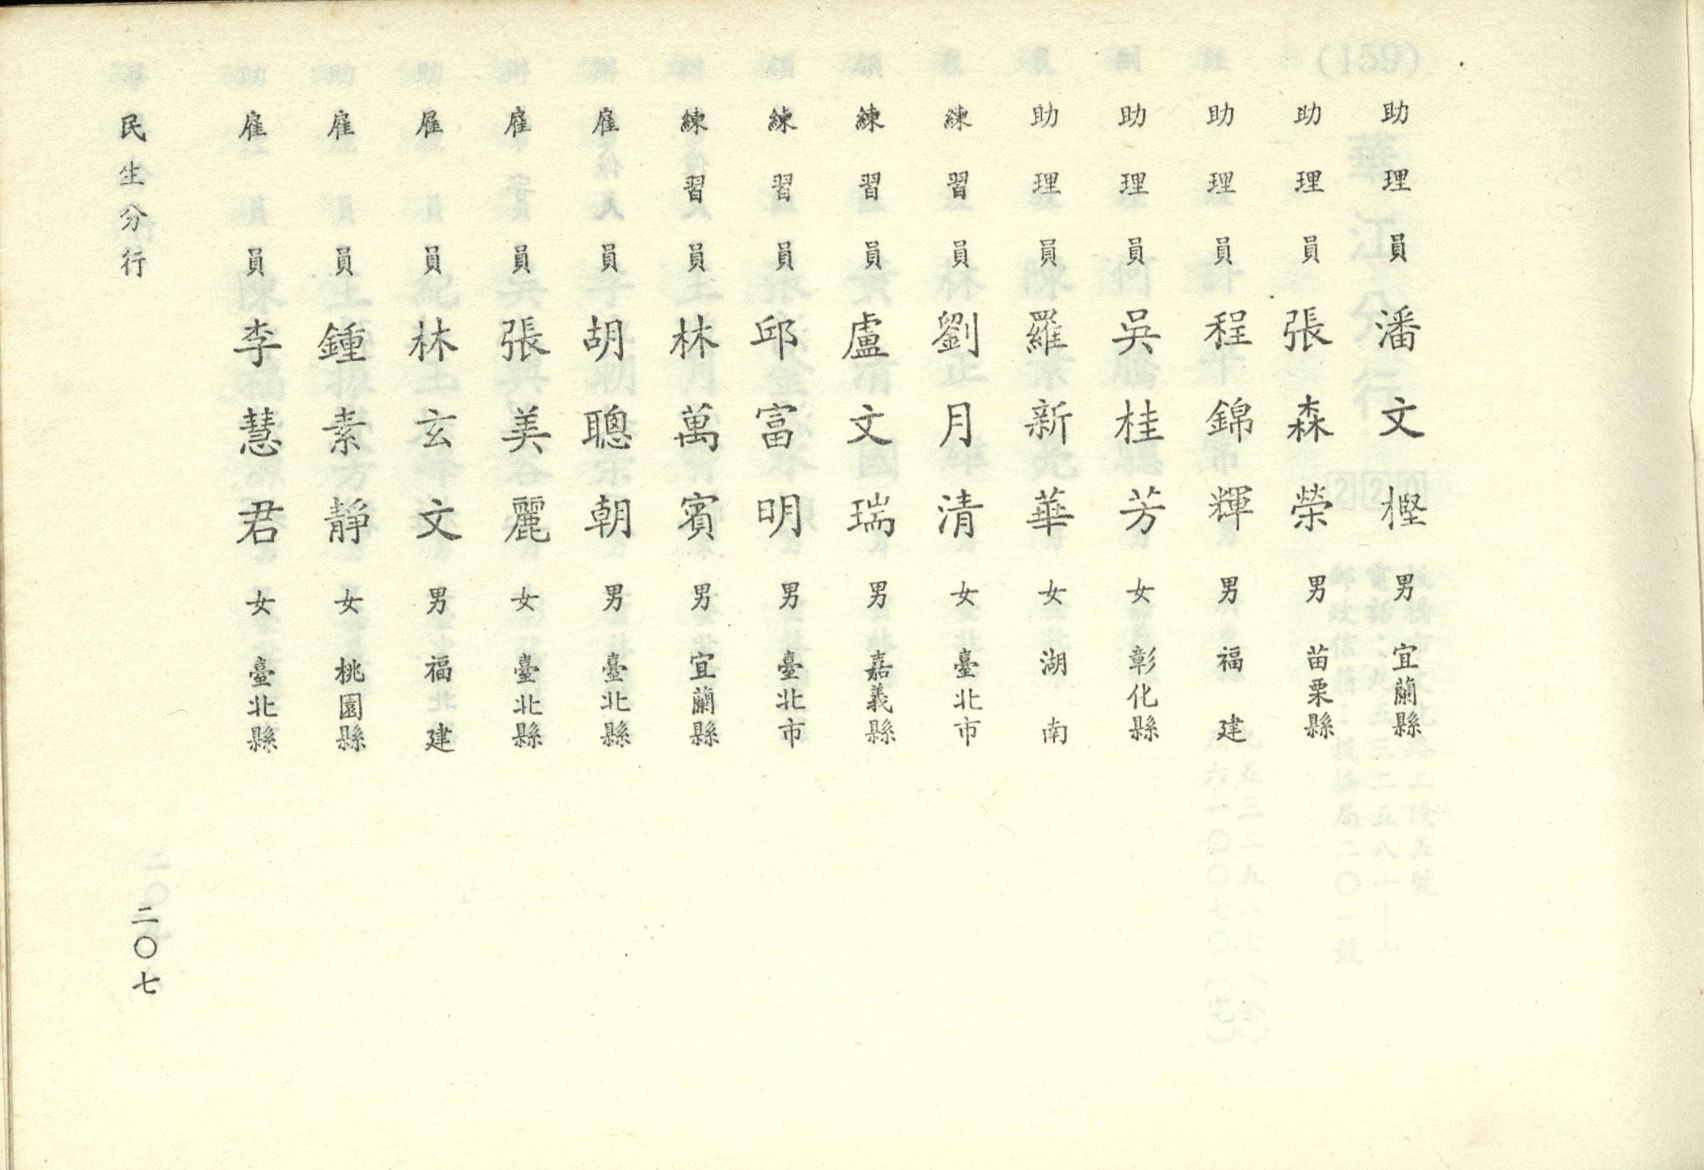 助理員 潘文樫 男 宜蘭縣
助理員 張森榮 男 苗栗縣
助理員 程錦輝 男 福建
助理員 吳桂芳 女 彰化縣
助理員 羅新華 女 湖南
練習員 劉月清 女 臺北市
練習員 盧文瑞 男 嘉義縣
練習員 邱富明 男 臺北市
練習員 林萬賓 男 宜蘭縣
雇員 胡聰朝 男 臺北縣
雇員 張美麗 女 臺北縣
雇員 林玄文 男 福建
雇員 鍾素靜 女 桃園縣
雇員 李慧君 女 臺北縣
民生分行
二〇七